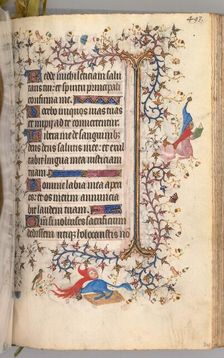 497
Redde michi leticiam salu
taris tui: et spiritu principali
confirma me.
Docebo iniquos uias tuas
et impii ad te conuertentur.
Libera me de sanguinib;
deus deus salutis mee: et exul
tabit lingua mea iusticiam
tuam.
Domine labia mea ape
ries: et os meum annuncia
bit laudem tuam.
Quoniam si uoluisses sacrificium
dedissem utiq; holocaustis no